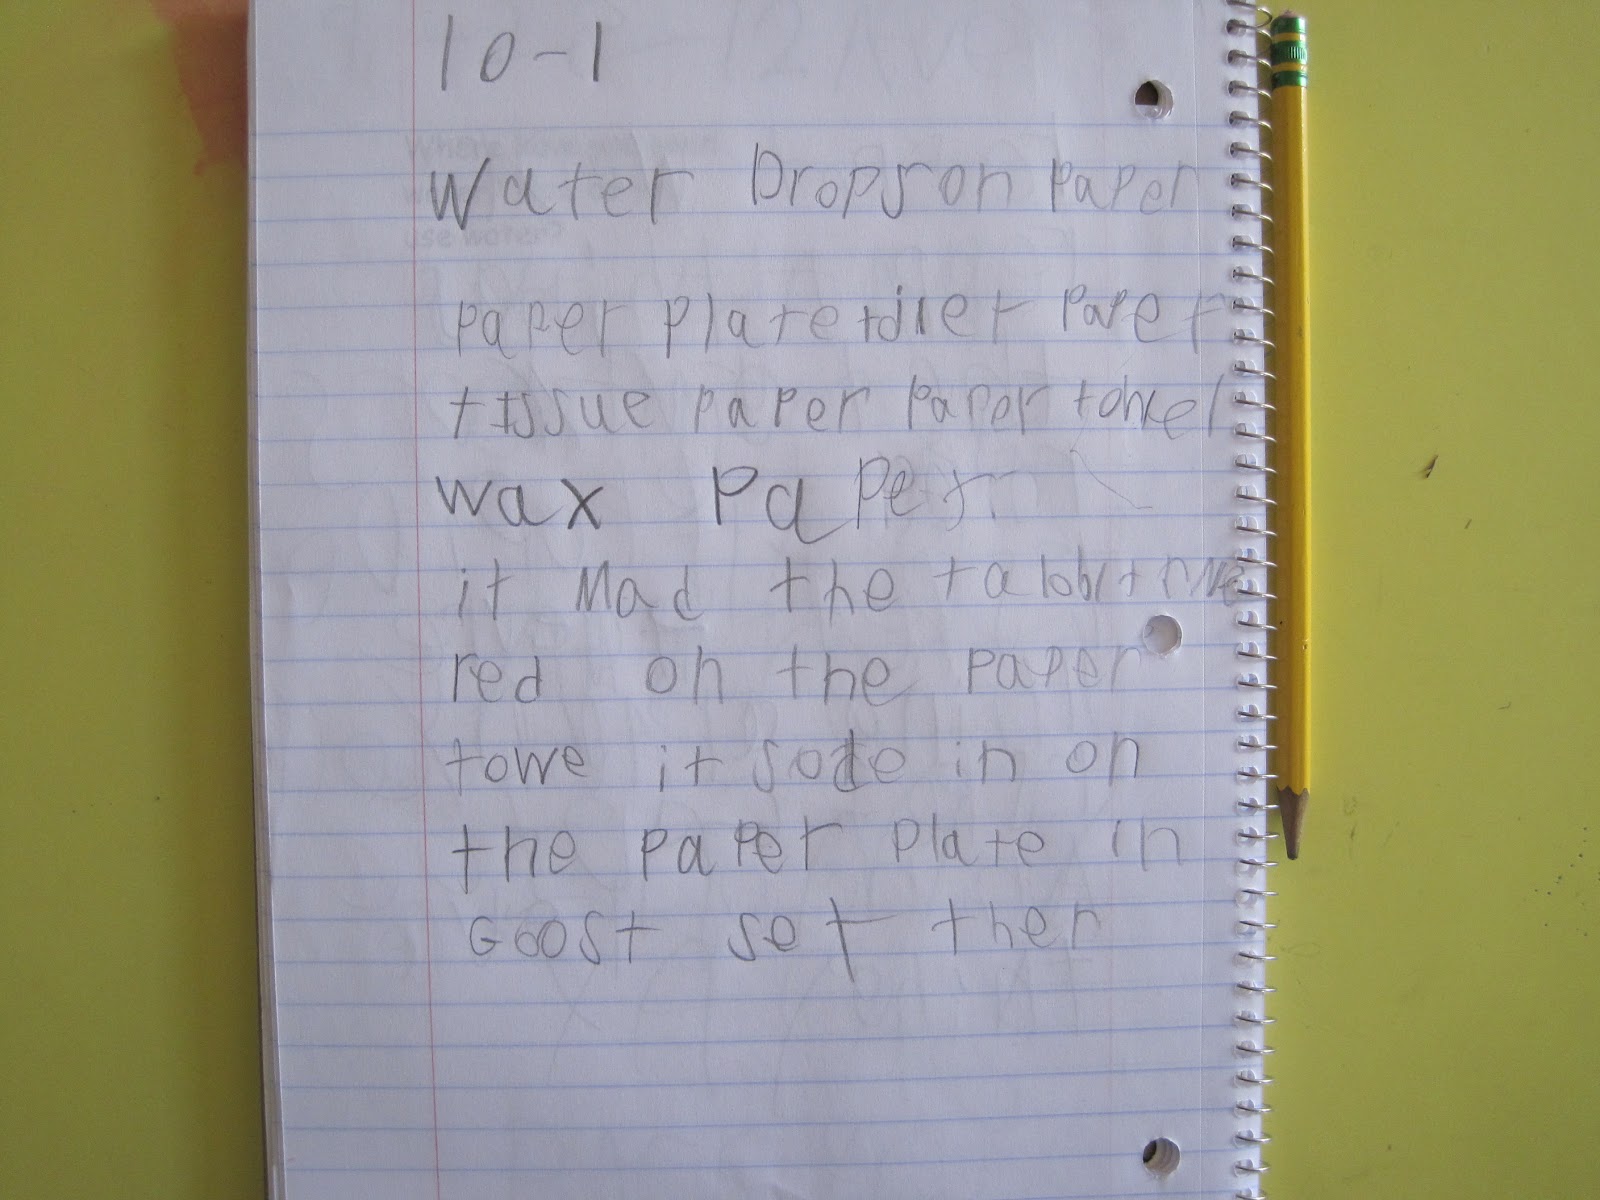 10-1
Water Drops on paper
paper plate toilet paper
tissue paper paper towel
wax paper
it Mad the
red on the paper
towe it sode in on
the paper plate in
Goost set ther